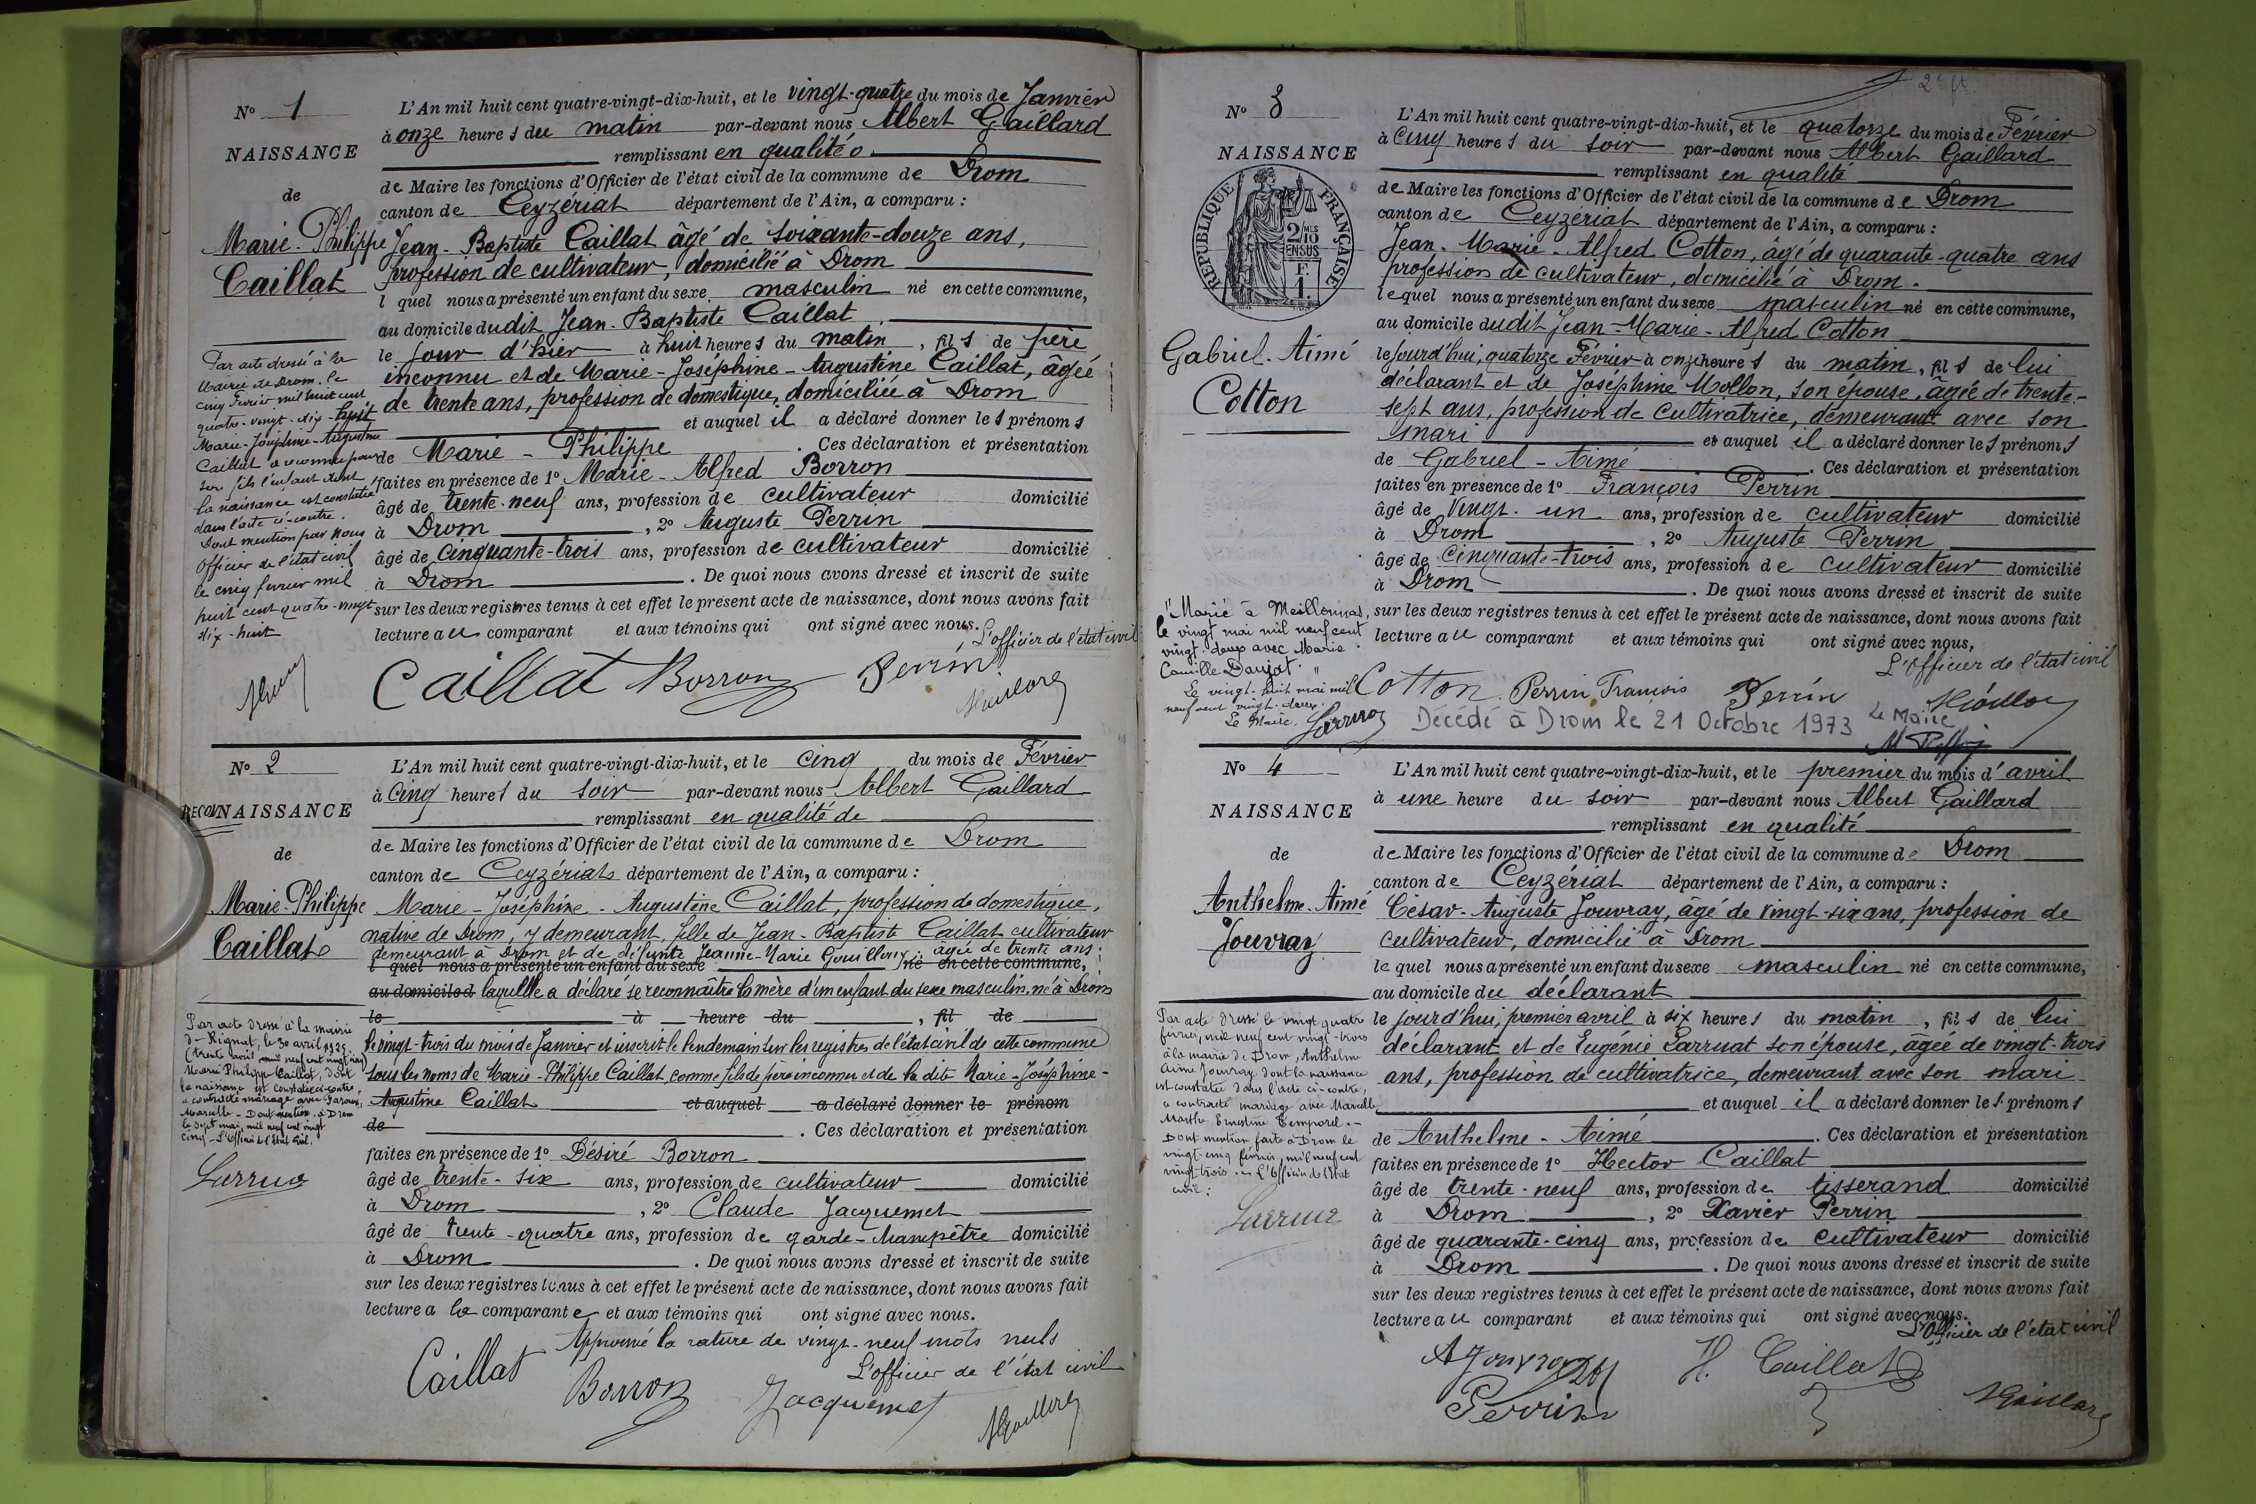 N° 1
NAISSANCE
de
Marie-Philippe
Caillat
L'An mil huit cent quatre-vingt-dix-huit, et le vingt-quatre du mois de Janvier
à onze heures du matin par-devant nous Albert Gaillard
remplissant en qualité
de Maire les fonctions d'Officier de l'état civil de la commune de Drom
canton de Ceyzériat département de l'Ain, a comparu :
Jean-Baptiste Caillat âgé de soixante-douze ans,
profession de cultivateur, domicilié à Drom
l quel nous a présenté un enfant du sexe masculin né en cette commune,
au domicile dudit Jean-Baptiste Caillat
le jour d'hier à huit heures du matin, fils de père
inconnu et de Marie-Joséphine-Augustine Caillat, âgée
de trente ans, profession de domestique, domiciliée à Drom
et auquel il a déclaré donner les prénoms
de Marie-Philippe. Ces déclaration et présentation
faites en présence de 1° Marie-Alfred Borron
âgé de trente-neuf ans, profession de cultivateur domicilié
à Drom, 2° Auguste Perrin
âgé de cinquante-trois ans, profession de cultivateur domicilié
à Drom. De quoi nous avons dressé et inscrit de suite
sur les deux registres tenus à cet effet le présent acte de naissance, dont nous avons fait
lecture au comparant et aux témoins qui ont signé avec nous.
L'officier de l'état civil
Par acte dressé à la
Mairie de Drom, le
cinq Février mil huit cent
quatre-vingt-dix-huit
Marie-Joséphine-Augustine
Caillat a reconnu pour
son fils l'enfant dont
la naissance est constatée
dans l'acte ci-contre.
Dont mention par nous
Officier de l'état civil
le cinq février mil
huit cent quatre-vingt
dix-huit
Caillat Borron Perrin
N° 2
RECON NAISSANCE
de
Marie-Philippe
Caillat
L'An mil huit cent quatre-vingt-dix-huit, et le cinq du mois de Février
à cinq heures du soir par-devant nous Albert Gaillard
remplissant en qualité de
de Maire les fonctions d'Officier de l'état civil de la commune de Drom
canton de Ceyzériat département de l'Ain, a comparu :
Marie-Joséphine-Augustine Caillat, profession de domestique,
native de Drom, y demeurant, fille de Jean-Baptiste Caillat cultivateur
demeurant à Drom et de défunte Jeanne-Marie Gouilloux, âgée de trente ans.
l quel nous a présenté un enfant du sexe né en cette commune,
au domicile d laquelle a déclaré se reconnaître la mère d'un enfant du sexe masculin, né à Drom
le à heure du, fil de
le vingt-trois du mois de Janvier et inscrit le lendemain sur les registres de l'état civil de cette commune
sous les noms de Marie-Philippe Caillat comme fils de père inconnu et de la dite Marie-Joséphine-
Augustine Caillat et auquel a déclaré donner le prénom
de. Ces déclaration et présentation
faites en présence de 1° Désiré Borron
âgé de trente-six ans, profession de cultivateur domicilié
à Drom, 2° Claude Jacquemet
âgé de trente-quatre ans, profession de garde-champêtre domicilié
à Drom. De quoi nous avons dressé et inscrit de suite
sur les deux registres tenus à cet effet le présent acte de naissance, dont nous avons fait
lecture a la comparante et aux témoins qui ont signé avec nous.
Approuvé la rature de vingt-neuf mots nuls
L'officier de l'état civil
Par acte dressé à la mairie
de Rignat, le 30 avril 1925
(trente avril mil neuf cent vingt cinq)
Marie Philippe Caillat, dont
la naissance est constatée ci-contre,
a contracté mariage avec
Marcelle - Dont mention à Drom
le sept mai, mil neuf cent vingt
cinq - L'Officier de l'Etat Civil.
Caillat Borron Jacquemet
N° 3
NAISSANCE
RÉPUBLIQUE FRANÇAISE
2/10 EN SUS
F. 1.
Gabriel-Aimé
Cotton
L'An mil huit cent quatre-vingt-dix-huit, et le quatorze du mois de Février
à cinq heures du soir par-devant nous Albert Gaillard
remplissant en qualité
de Maire les fonctions d'Officier de l'état civil de la commune de Drom
canton de Ceyzériat département de l'Ain, a comparu :
Jean-Marie-Alfred Cotton, âgé de quarante-quatre ans
profession de cultivateur, domicilié à Drom.
lequel nous a présenté un enfant du sexe masculin né en cette commune,
au domicile dudit Jean-Marie-Alfred Cotton
le jourd'hui, quatorze Février à onze heures du matin, fils de lui
déclarant et de Joséphine Mollon, son épouse, âgée de trente-
sept ans, profession de cultivatrice, demeurant avec son
mari et auquel il a déclaré donner les prénoms
de Gabriel-Aimé. Ces déclaration et présentation
faites en présence de 1° François Perrin
âgé de vingt-un ans, profession de cultivateur domicilié
à Drom, 2° Auguste Perrin
âgé de cinquante-trois ans, profession de cultivateur domicilié
à Drom. De quoi nous avons dressé et inscrit de suite
sur les deux registres tenus à cet effet le présent acte de naissance, dont nous avons fait
lecture au comparant et aux témoins qui ont signé avec nous,
L'Officier de l'état civil
"Marié à Meillonnas,
le vingt mai mil neuf cent
vingt-deux avec Marie
Camille Daujat."
Le vingt-huit mai mil
neuf cent vingt-deux.
Le Maire.
Cotton Perrin François Perrin
Décédé à Drom le 21 Octobre 1973 Le Maire
N° 4
NAISSANCE
de
Anthelme-Aimé
Jouvray
L'An mil huit cent quatre-vingt-dix-huit, et le premier du mois d'avril
à une heure du soir par-devant nous Albert Gaillard
remplissant en qualité
de Maire les fonctions d'Officier de l'état civil de la commune de Drom
canton de Ceyzériat département de l'Ain, a comparu :
César-Auguste Jouvray, âgé de vingt-six ans, profession de
cultivateur, domicilié à Drom
lequel nous a présenté un enfant du sexe masculin né en cette commune,
au domicile du déclarant
le jourd'hui, premier avril à six heures du matin, fils de lui
déclarant et de Eugénie Larruat son épouse, âgée de vingt-trois
ans, profession de cultivatrice, demeurant avec son mari
et auquel il a déclaré donner les prénoms
de Anthelme-Aimé. Ces déclaration et présentation
faites en présence de 1° Hector Caillat
âgé de trente-neuf ans, profession de tisserand domicilié
à Drom, 2° Xavier Perrin
âgé de quarante-cinq ans, profession de cultivateur domicilié
à Drom. De quoi nous avons dressé et inscrit de suite
sur les deux registres tenus à cet effet le présent acte de naissance, dont nous avons fait
lecture au comparant et aux témoins qui ont signé avec nous.
L'Officier de l'état civil
Par acte dressé le vingt quatre
février, mil neuf cent vingt-trois
à la mairie de Drom, Anthelme
Aimé Jouvray dont la naissance
est constatée dans l'acte ci-contre,
a contracté mariage avec Marcelle
Marthe Ernestine Temporel.-
Dont mention faite à Drom le
vingt-cinq février, mil neuf cent
vingt-trois.- L'Officier de l'Etat
civil:
H. Caillat
Perrin